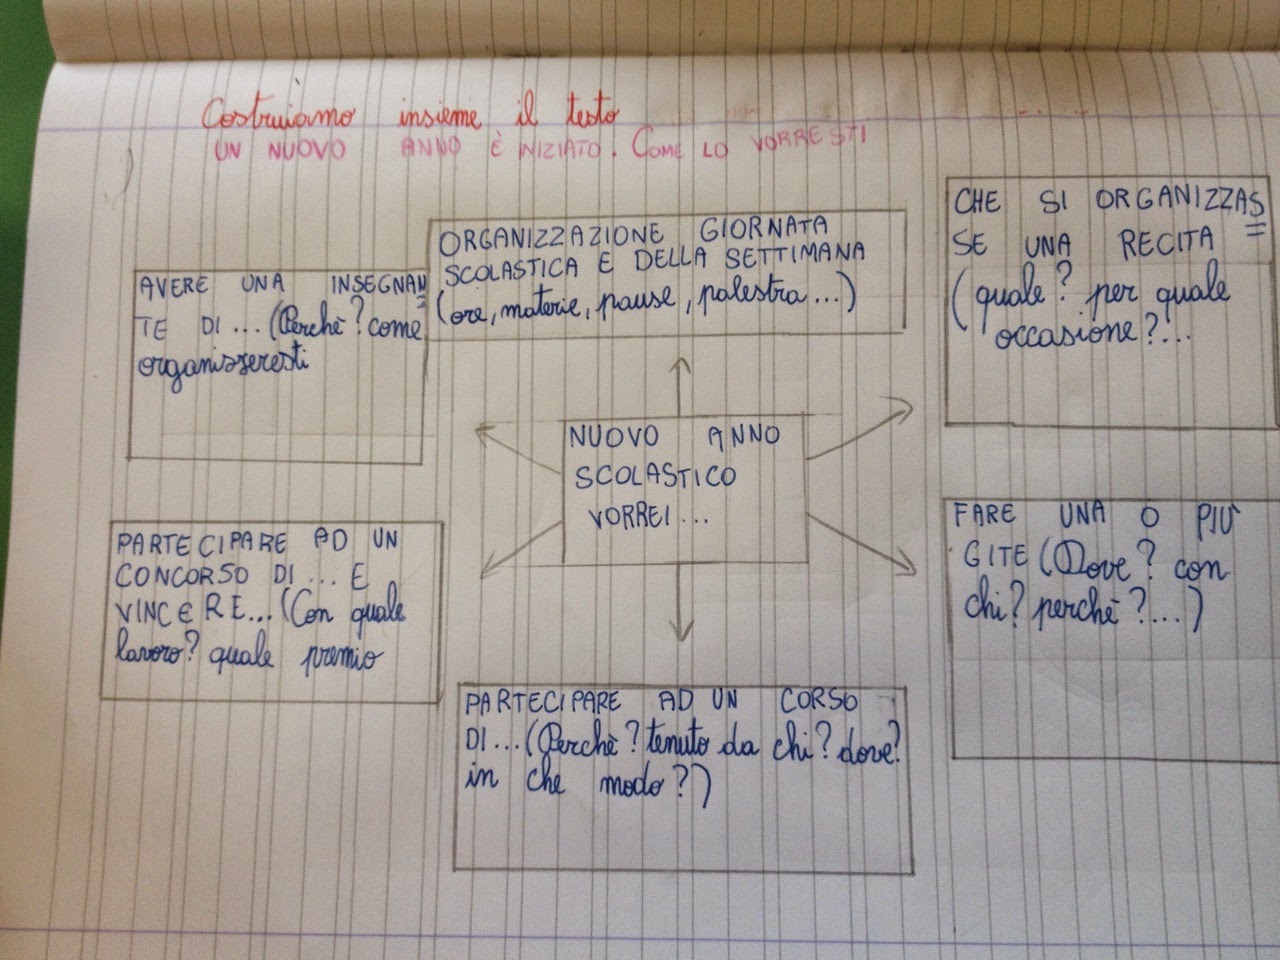 Costruiamo insieme il testo
UN NUOVO ANNO È INIZIATO. COME LO VORRESTI
ORGANIZZAZIONE GIORNATA
SCOLASTICA E DELLA SETTIMANA
(ore, materie, pause, palestra...)
CHE SI ORGANIZZAS=
SE UNA RECITA
(quale? per quale
occasione?...
AVERE UNA INSEGNAN=
TE DI... (Perchè? come
organizzeresti
NUOVO ANNO
SCOLASTICO
VORREI...
PARTECIPARE AD UN
CONCORSO DI... E
VINCERE... (Con quale
lavoro? quale premio
FARE UNA O PIÙ
GITE (Dove? con
chi? perchè?...)
PARTECIPARE AD UN CORSO
DI... (Perchè? tenuto da chi? dove?
in che modo?)